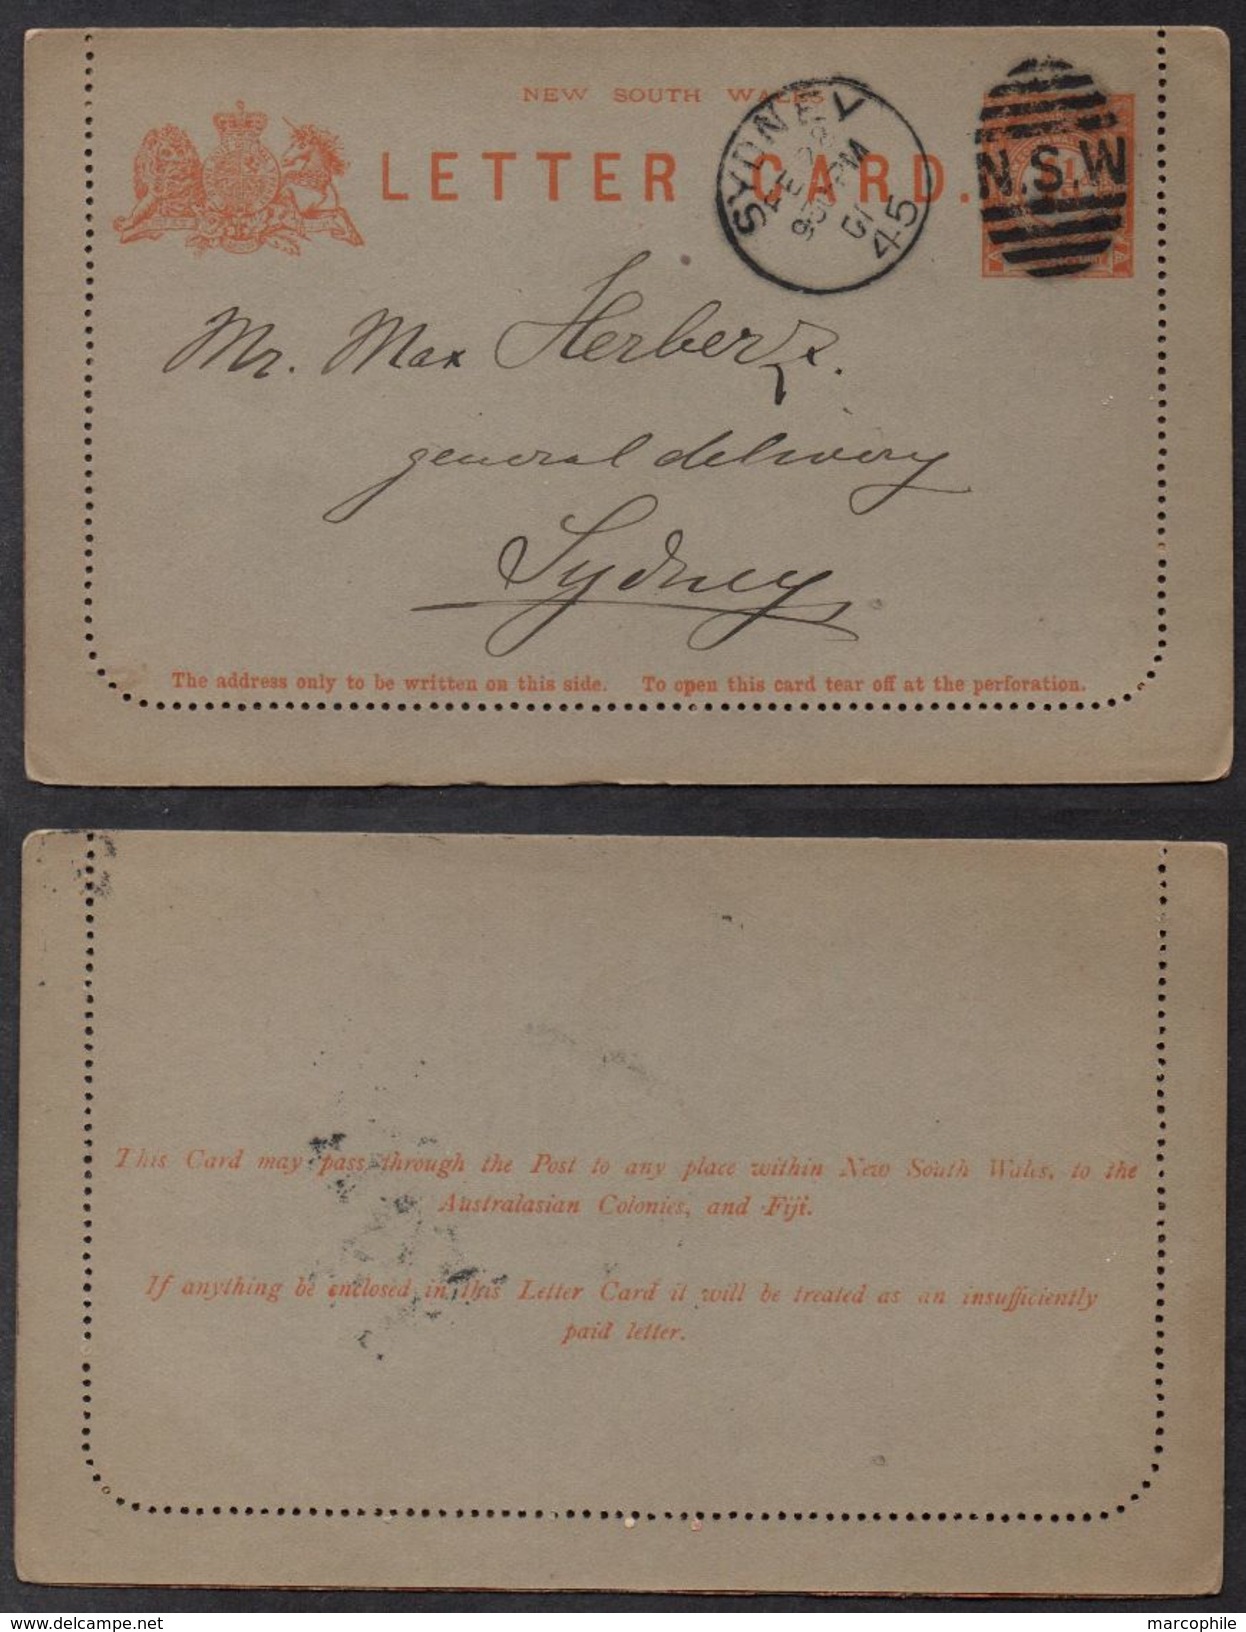 NEW SOUTH WALES
LETTER CARD.
SYDNEY
FE 28
9 30 PM
01
45
N.S.W
Mr. Max Herberz.
general delivery
Sydney
The address only to be written on this side. To open this card tear off at the perforation.
This Card may pass through the Post to any place within New South Wales, to the
Australasian Colonies, and Fiji.
If anything be enclosed in this Letter Card it will be treated as an insufficiently
paid letter.
marcophile
marcophile